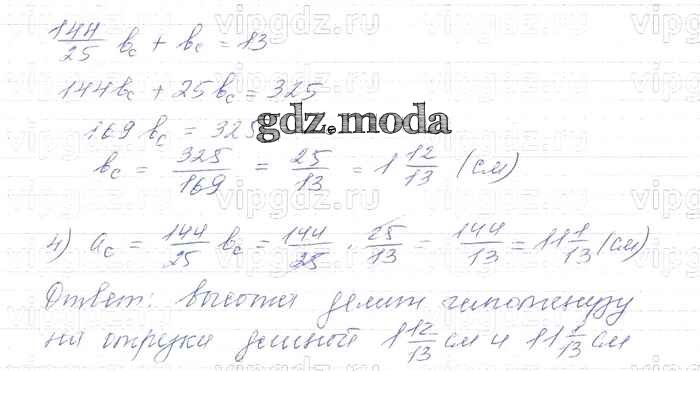 144/25 b_c + b_c = 13
144b_c + 25b_c = 325
169 b_c = 325
gdz.moda
b_c = 325/169 = 25/13 = 1 12/13 (см)
4) a_c = 144/25 b_c = 144/25 · 25/13 = 144/13 = 11 1/13 (см)
Ответ: высота делит гипотенузу
на отрезки длиной 1 12/13 см и 11 1/13 см
vipgdz.ru